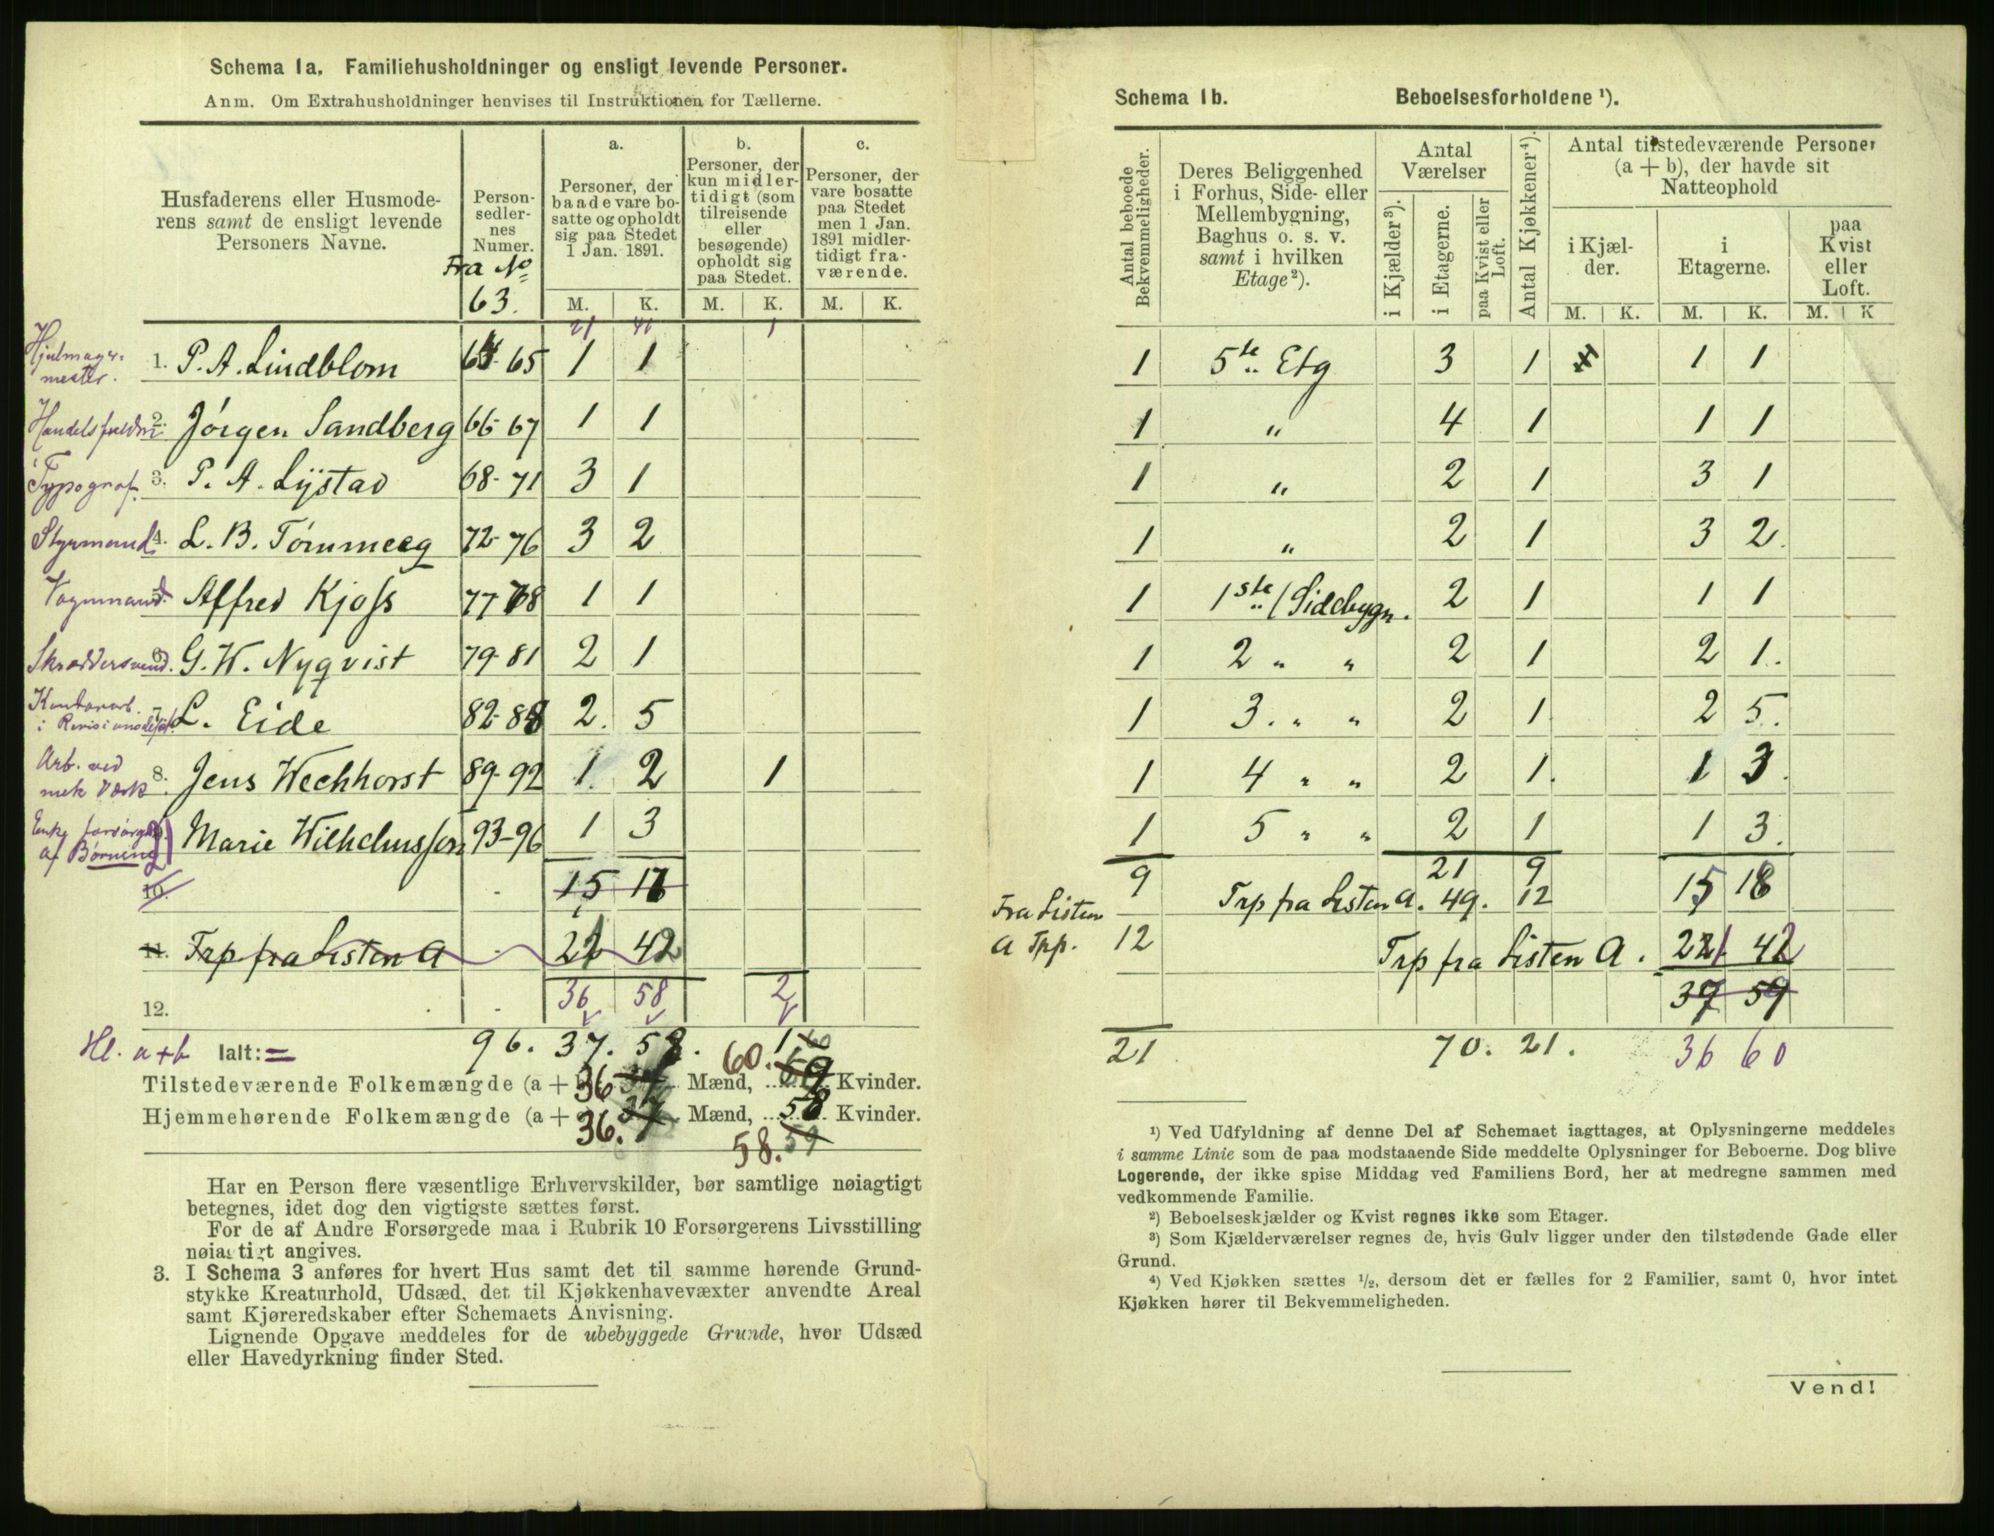 Schema 1a. Familiehusholdninger og ensligt levende Personer.
Anm. Om Extrahusholdninger henvises til Instruktionen for Tællerne.
Husfaderens eller Husmoderens samt de ensligt levende Personers Navne.
Personsedlernes Numer.
Fra No 63.
a.
Personer, der baade vare bosatte og opholdt sig paa Stedet 1 Jan. 1891.
b.
Personer, der kun midlertidigt (som tilreisende eller besøgende) opholdt sig paa Stedet.
c.
Personer, der vare bosatte paa Stedet men 1 Jan. 1891 midlertidigt fraværende.
M. K. M. K. M. K.
21 41 1
Hjulmagermester. 1. P. A. Lindblom 64-65 1 1
2. Jörgen Sandberg 66-67 1 1
Typograf. 3. P. A. Lÿstad 68-71 3 1
Styrmand 4. L. B. Tömmerg 72-76 3 2
Vognmand. Alfred Kjoss 77-78 1 1
Skræddersvend. 6. G. W. Nyqvist 79-81 2 1
7. L. Eide 82-88 2. 5
Arb. ved mek Værk 8. Jens Wechhorst 89-92 1. 2 1
Enke forsørges af Børnene Marie Wilhelmssen 93-96 1 3
10. 15 17
11. Trp fra Listen A 21 42
36 58 2
12.
Hl. a+b Ialt: = 96. 37. 58. 1
Tilstedeværende Folkemængde (a + 36 Mænd, 60. 59 Kvinder.
Hjemmehørende Folkemængde (a + 36. 37 Mænd, 58 Kvinder.
58. 59
Har en Person flere væsentlige Erhvervskilder, bør samtlige nøiagtigt
betegnes, idet dog den vigtigste sættes først.
For de af Andre Forsørgede maa i Rubrik 10 Forsørgerens Livsstilling
nøiagtigt angives.
3. I Schema 3 anføres for hvert Hus samt det til samme hørende Grund-
stykke Kreaturhold, Udsæd, det til Kjøkkenhavevæxter anvendte Areal
samt Kjøreredskaber efter Schemaets Anvisning.
Lignende Opgave meddeles for de ubebyggede Grunde, hvor Udsæd
eller Havedyrkning finder Sted.
Schema 1b. Beboelsesforholdene ¹).
Antal beboede Bekvemmeligheder.
Deres Beliggenhed i Forhus, Side- eller Mellembygning, Baghus o. s. v. samt i hvilken Etage²).
Antal Værelser
i Kjælder³).
i Etagerne.
paa Kvist eller Loft.
Antal Kjøkkener⁴).
Antal tilstedeværende Personer (a + b), der havde sit Natteophold
i Kjælder.
i Etagerne.
paa Kvist eller Loft.
M. K. M. K. M. K
1 5te Etg 3 1 1 1
1 " 4 1 1 1
1 " 2 1 3 1
1 " 2 1 3 2.
1 1ste / Sidebygn. 2 1 1 1
1 2 " " 2 1 2 1.
1 3. " " 2 1. 2 5.
1 4 " " 2 1. 1 3.
1 5 " " 2 1 1 3.
9 21 9 15 18
Trp fra Listen A. 49. 12
Fra Listen
A Trp. 12 Trp fra Listen A. 221 42
37 59
21 70. 21. 36 60
¹) Ved Udfyldning af denne Del af Schemaet iagttages, at Oplysningerne meddeles
i samme Linie som de paa modstaaende Side meddelte Oplysninger for Beboerne. Dog blive
Logerende, der ikke spise Middag ved Familiens Bord, her at medregne sammen med
vedkommende Familie.
²) Beboelseskjælder og Kvist regnes ikke som Etager.
³) Som Kjælderværelser regnes de, hvis Gulv ligger under den tilstødende Gade eller
Grund.
⁴) Ved Kjøkken sættes ½, dersom det er fælles for 2 Familier, samt 0, hvor intet
Kjøkken hører til Bekvemmeligheden.
Vend!